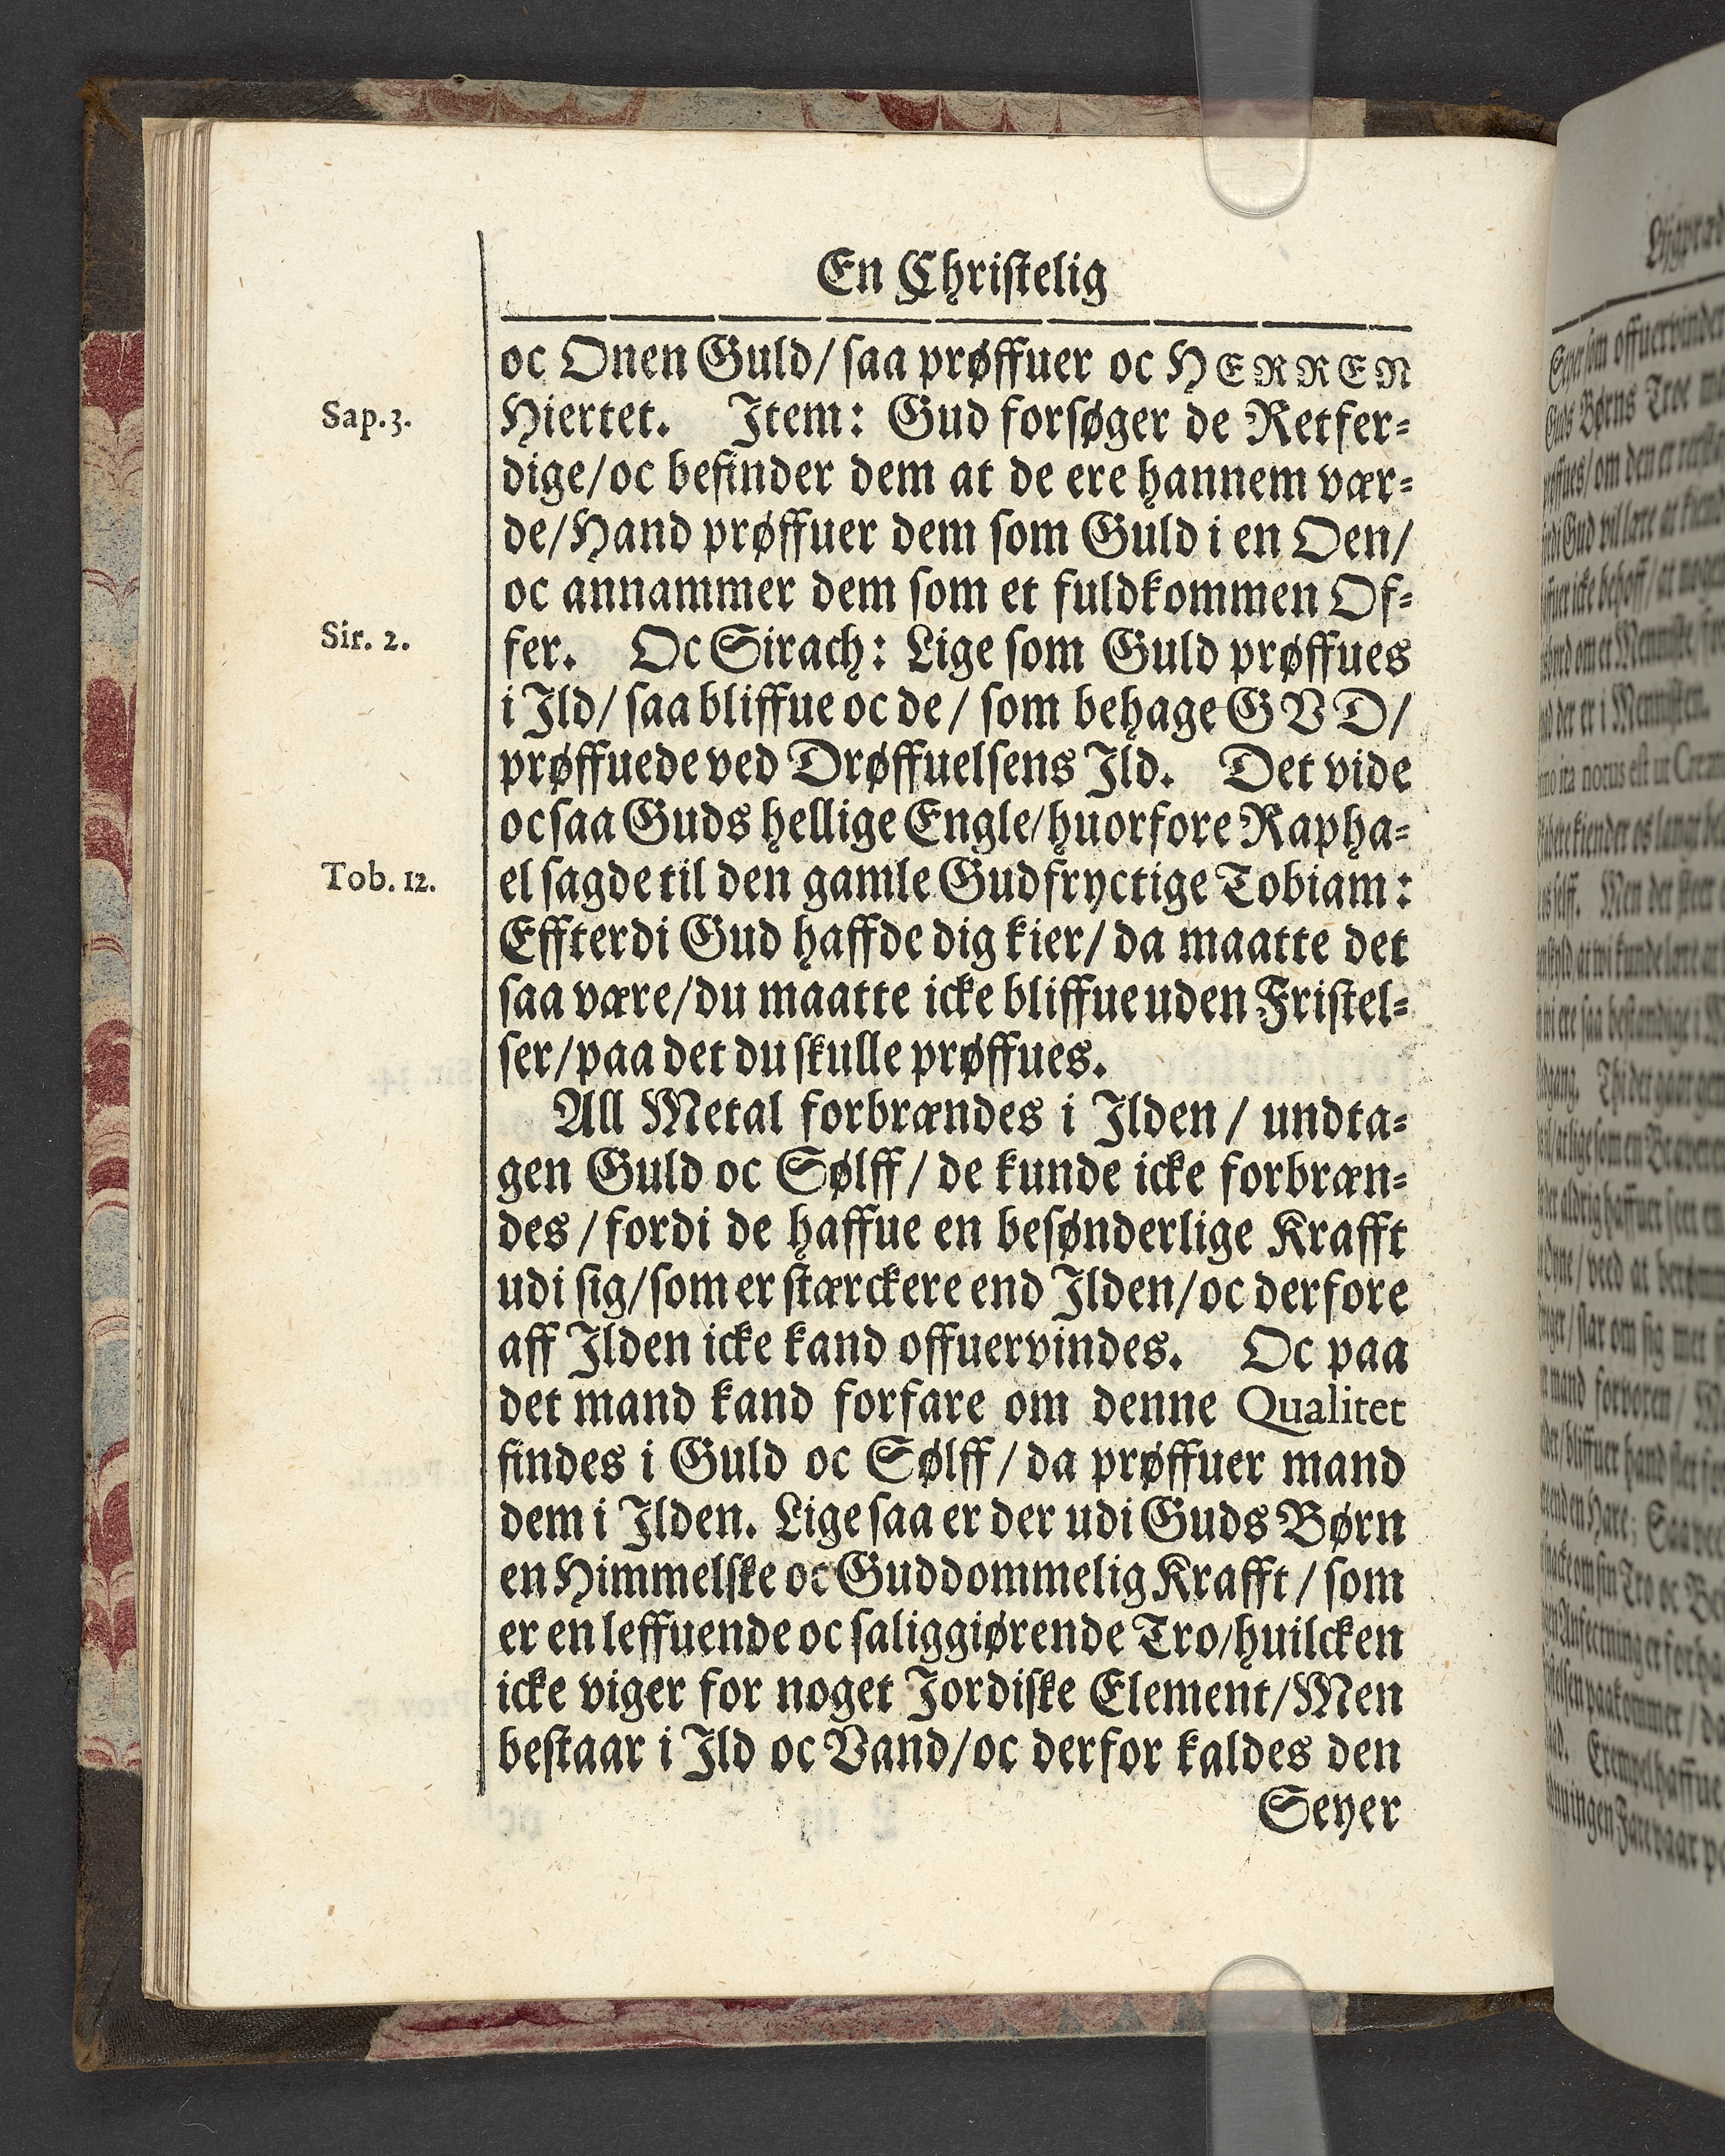 En Christelig
oc Onen Guld/ saa prøffuer oc HERREN
Sap. 3.
Hiertet. Item: Gud forsøger de Retfer-
dige/ oc befinder dem at de ere hannem vær-
de/ Hand prøffuer dem som Guld i en Oen/
oc annammer dem som et fuldkommen Of-
Sir. 2.
fer. Oc Sirach: Lige som Guld prøffues
i Ild/ saa bliffue oc de/ som behage GVD/
prøffuede ved Drøffuelsens Ild. Det vide
ocsaa Guds hellige Engle/ huorfore Rapha-
Tob. 12.
el sagde til den gamle Gudfryctige Tobiam:
Effterdi Gud haffde dig kier/ da maatte det
saa være/ du maatte icke bliffue uden Fristel-
ser/ paa det du skulle prøffues.
All Metal forbrændes i Ilden/ undta-
gen Guld oc Sølff/ de kunde icke forbræn-
des/ fordi de haffue en besønderlige Krafft
udi sig/ som er stærckere end Ilden/ oc derfore
aff Ilden icke kand offuervindes. Oc paa
det mand kand forfare om denne Qualitet
findes i Guld oc Sølff/ da prøffuer mand
dem i Ilden. Lige saa er der udi Guds Børn
en Himmelske oc Guddommelig Krafft/ som
er en leffuende oc saliggiørende Tro/ huilcken
icke viger for noget Jordiske Element/ Men
bestaar i Ild oc Vand/ oc derfor kaldes den
Seyer